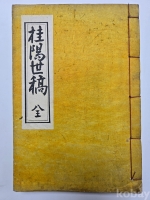 桂陽世稿
全
kobay